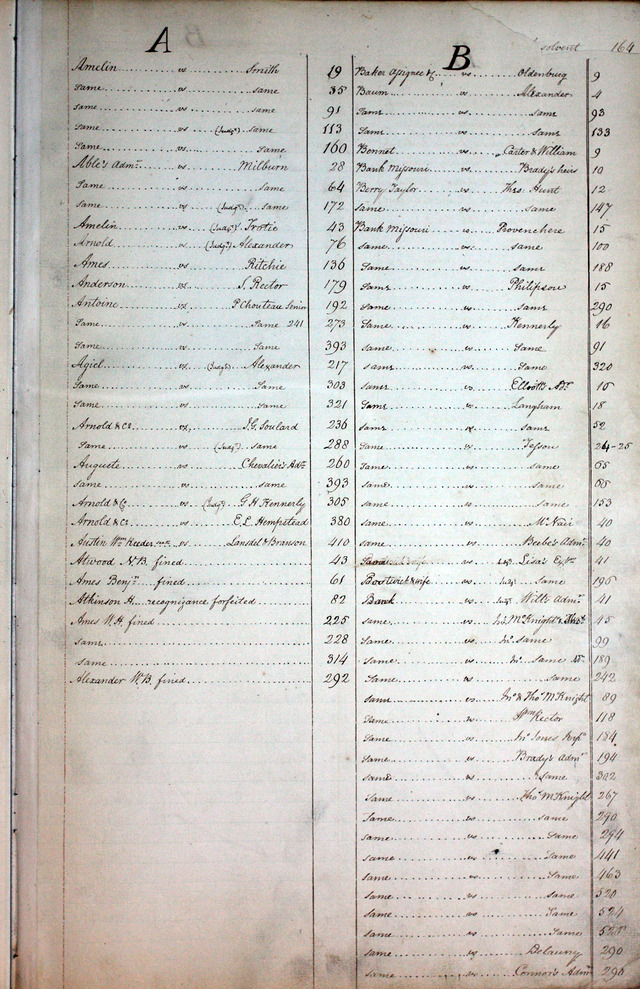 solvent 164
A
Amelin vs Smith 19
same vs same 35
same vs same 91
same vs (Judgt) same 113
Same vs Same 160
Able's Admr vs Milburn 28
Same vs same 64
same vs (Judgt) same 172
Amelin vs (Judgt) Trotie 43
Arnold vs (Judgt) Alexander 76
Ames vs Ritchie 136
Anderson vs S. Rector 179
Antoine vs P Chouteau Senior 192
Same vs Same 241 273
Same vs Same 393
Agiel vs (Judgt) Alexander 217
Same vs Same 303
Same vs Same 321
Arnold & Co vs J.G. Soulard 236
Same vs (Judgt) same 288
Auguste vs Chevalier's Adr 260
same vs same 393
Arnold & Co vs (Judgt) G H Kennerly 305
Arnold & Co vs E.L. Hempstead 380
Austin Wm Reeder vs Lansdel & Branson 410
Atwood N.B. fined 43
Ames Benjn fined 61
Atkinson H. recognizance forfeited 82
Ames W.H. fined 225
same 228
same 314
Alexander W.B. fined 292
B
Baker assignee vs Oldenburg 9
Baum vs Alexander 4
Same vs same 93
Same vs same 133
Bennet vs Carter & William 9
Bank Missouri vs Brady's heirs 10
Berry Taylor vs Thos. Hunt 12
same vs same 147
Bank Missouri vs Provenchere 15
same vs same 100
Same vs same 188
Same vs Philipson 15
same vs same 290
Same vs Kennerly 16
same vs Same 91
same vs Same 320
same vs Elliott's Adr 16
Same vs Langham 18
same vs same 52
Same vs Tesson 24-25
Same vs same 65
same vs same 65
same vs same 153
Same vs McNair 40
same vs Beebe's Admr 40
vs Judgt Lisa's Exr 41
Bostwick & wife vs Judgt same 195
Bank vs Judgt Wilt's Admr 41
same vs Jno McKnight 45
same vs Jno same 99
Same vs Jno same 189
Same vs same 242
same vs Jno & Thos McKnight 89
Same vs Wm Rector 118
Same vs Jno Jones 184
Same vs Brady's Admr 194
same vs Same 302
Same vs Thos McKnight 267
Same vs same 290
Same vs Same 294
same vs Same 441
same vs Same 463
same vs same 520
same vs Same 524
same vs Same
same vs Delauny 290
same vs Connor's Admr 290